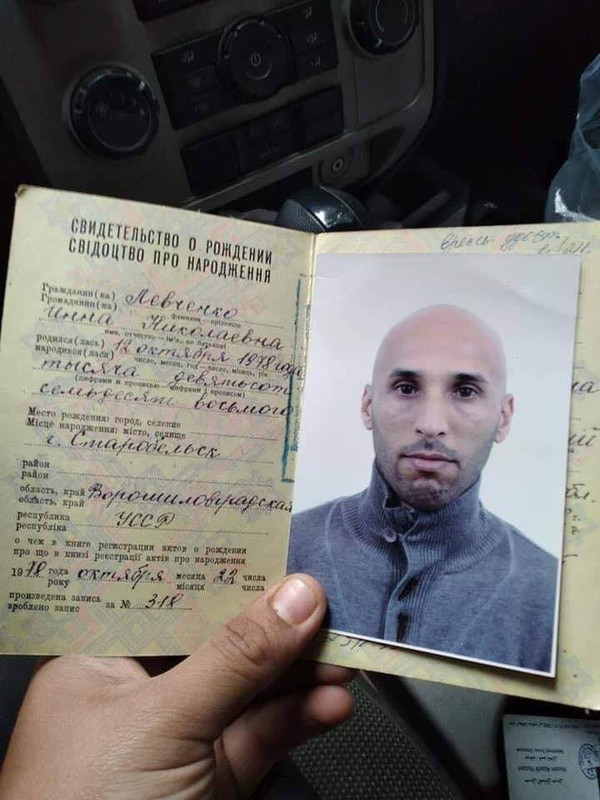 СВИДЕТЕЛЬСТВО О РОЖДЕНИИ
СВІДОЦТВО ПРО НАРОДЖЕННЯ
Гражданин(ка) Левченко
Громадянин(ка)
Фамилия — прізвище
Инна Николаевна
имя, отчество — ім'я, по батькові
родился(лась) 12 октября 1978 года
народився(лася)
число, месяц, год — число, місяць, рік
тысяча девятьсот
(цифрами и прописью — цифрами і прописом)
семьдесят восьмого
Место рождения: город, селение
Місце народження: місто, селище
г. Старобельск
район
район
область, край Ворошиловградская
область, край
республика УССР
республіка
о чем в книге регистрации актов о рождении
про що в книзі реєстрації актів про народження
1978 года октября месяца 22 числа
року місяця числа
произведена запись
зроблено запис за № 318